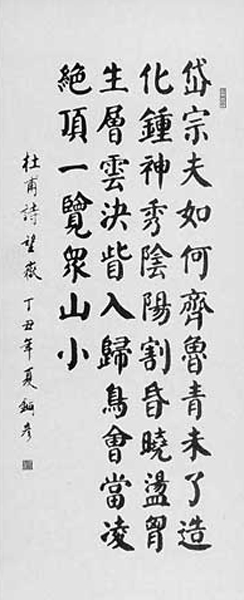 岱宗夫如何齊魯青未了造
化鍾神秀陰陽割昏曉盪胷
生層雲決眥入歸鳥會當凌
絶頂一覽衆山小
杜甫詩望嶽 丁丑年夏